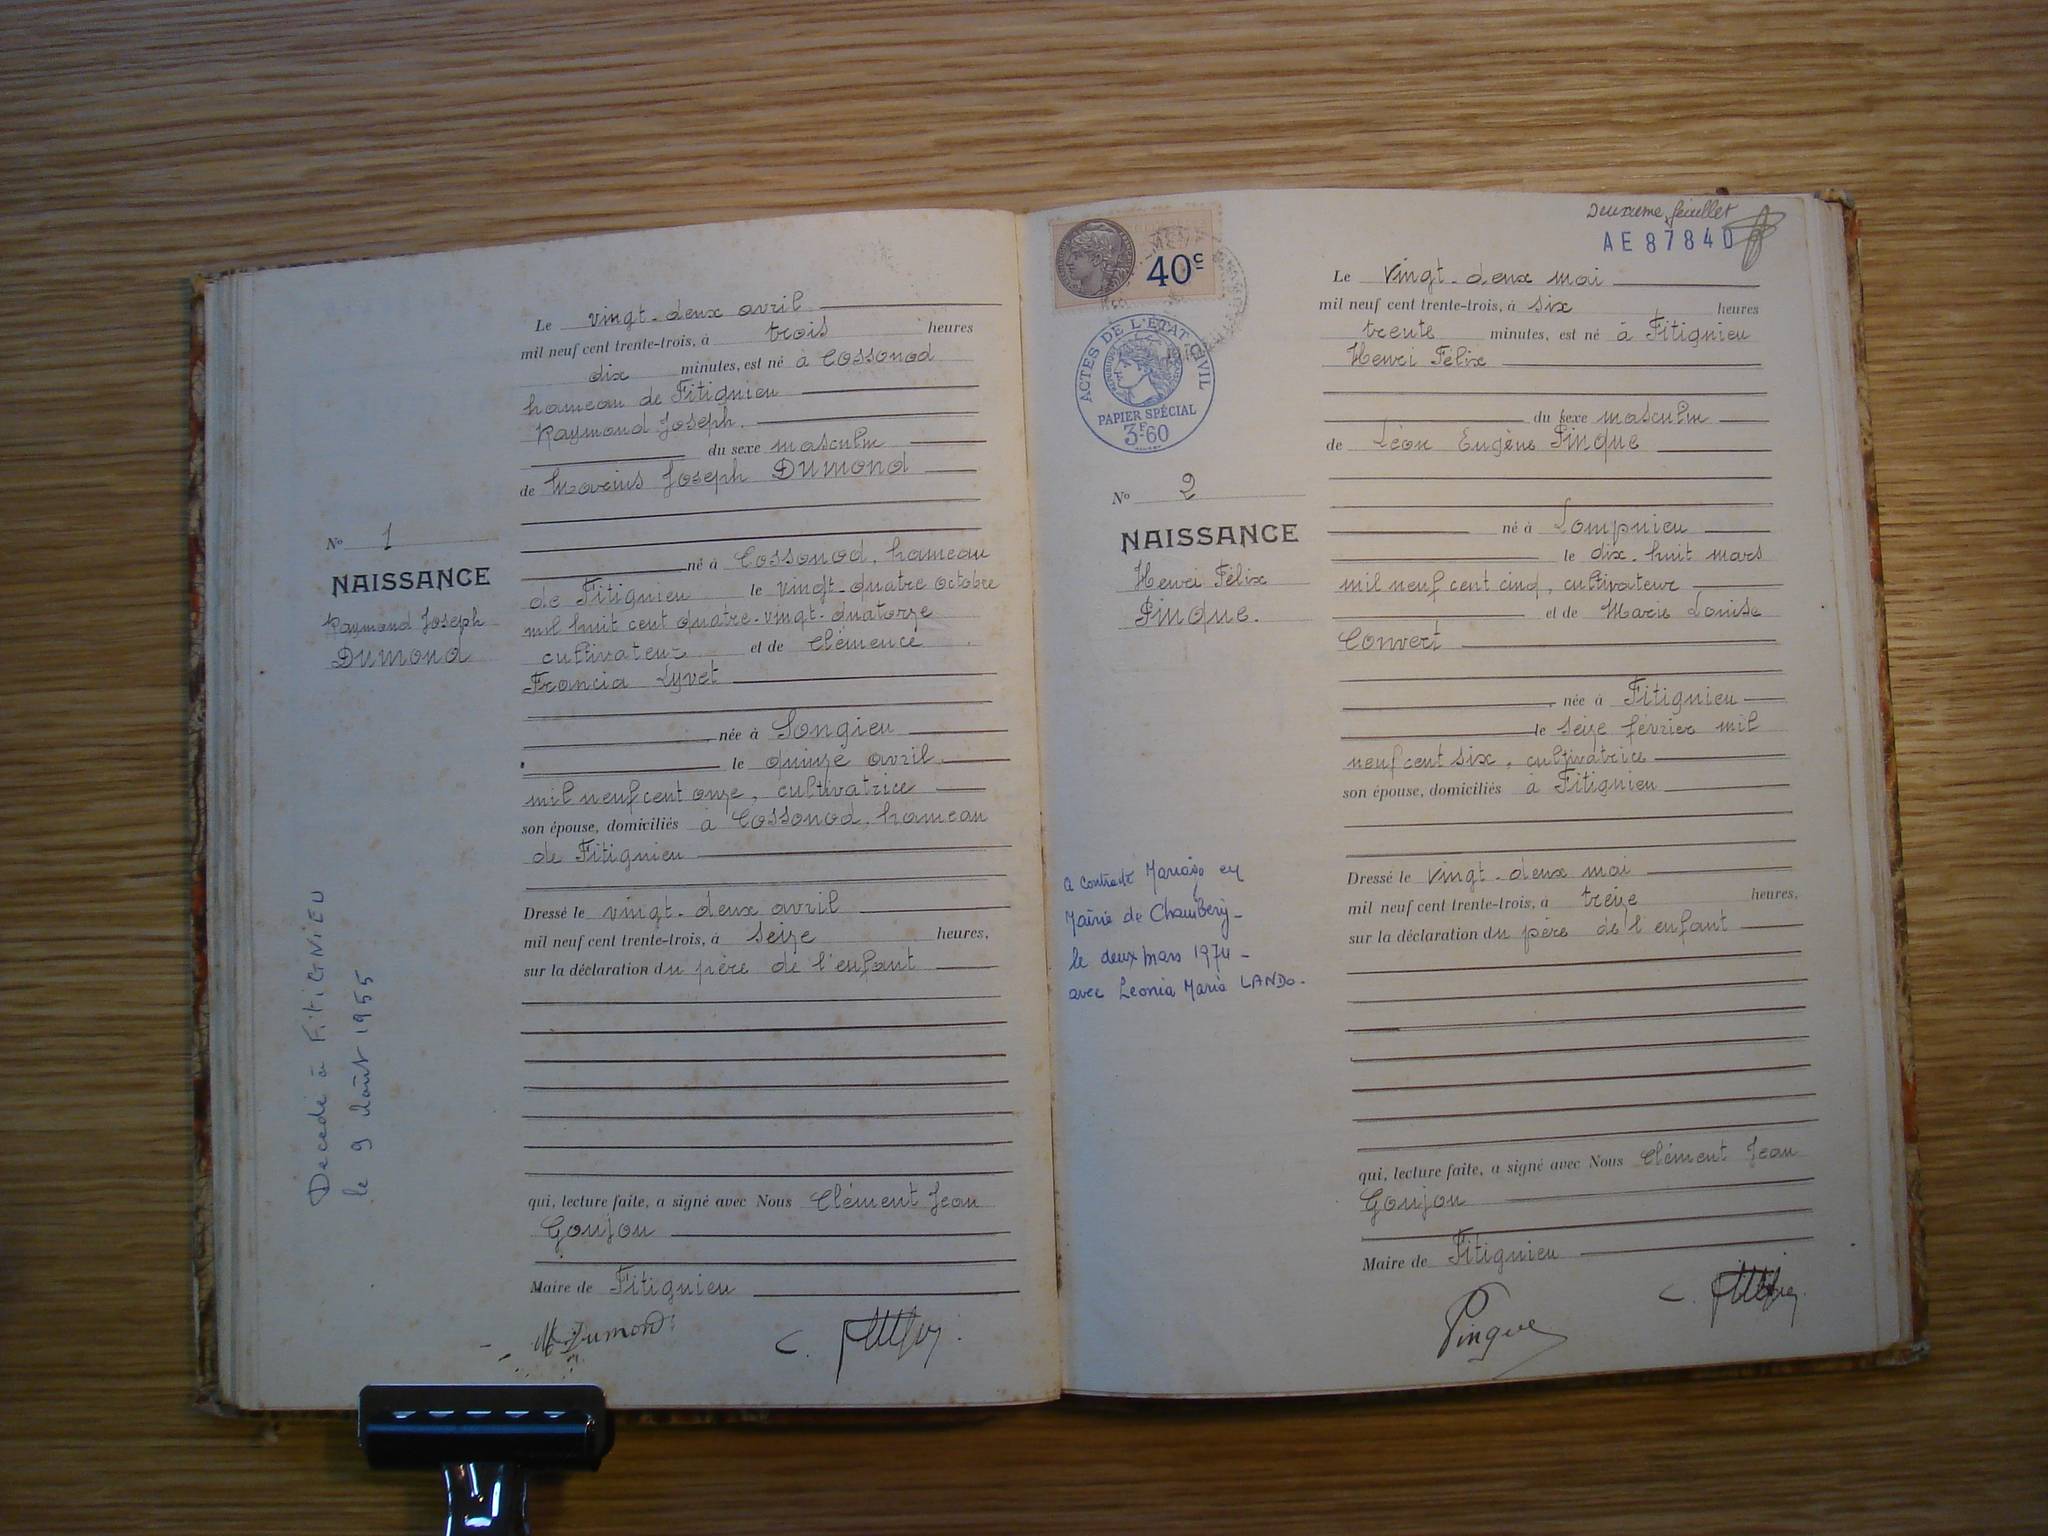 Le vingt-deux avril
mil neuf cent trente-trois, à trois heures
dix minutes, est né à Cossonod
hameau de Fitignieu
Raymond Joseph.
du sexe masculin
de Marius Joseph DUMOND
né à Cossonod, hameau
de Fitignieu le vingt-quatre octobre
mil huit cent quatre-vingt-quatorze
cultivateur et de Clémence
Francia Lyvet
née à Songieu
le quinze avril
mil neuf cent onze, cultivatrice
son épouse, domiciliés à Cossonod, hameau
de Fitignieu
Dressé le vingt-deux avril
mil neuf cent trente-trois, à seize heures,
sur la déclaration du père de l'enfant
qui, lecture faite, a signé avec Nous Clément Jean
Goujon
Maire de Fitignieu
M Dumond
No 1
NAISSANCE
Raymond Joseph
DUMOND
Décédé à FITIGNIEU
le 9 Août 1955
Deuxième feuillet
AE 87840
40c
ACTES DE L'ÉTAT CIVIL
PAPIER SPÉCIAL
3F60
No 2
NAISSANCE
Henri Félix
Pinque.
a contracté Mariage en
Mairie de Chambéry-
le deux mars 1974-
avec Leonia Maria LANDO.
Le vingt-deux mai
mil neuf cent trente-trois, à six heures
trente minutes, est né à Fitignieu
Henri Félix
du sexe masculin
de Léon Eugène Pinque
né à Lompnieu
le dix-huit mars
mil neuf cent cinq, cultivateur
et de Marie Louise
Convert
née à Fitignieu
le seize février mil
neuf cent six, cultivatrice
son épouse, domiciliés à Fitignieu
Dressé le vingt-deux mai
mil neuf cent trente-trois, à treize heures,
sur la déclaration du père de l'enfant
qui, lecture faite, a signé avec Nous Clément Jean
Goujon
Maire de Fitignieu
Pinque